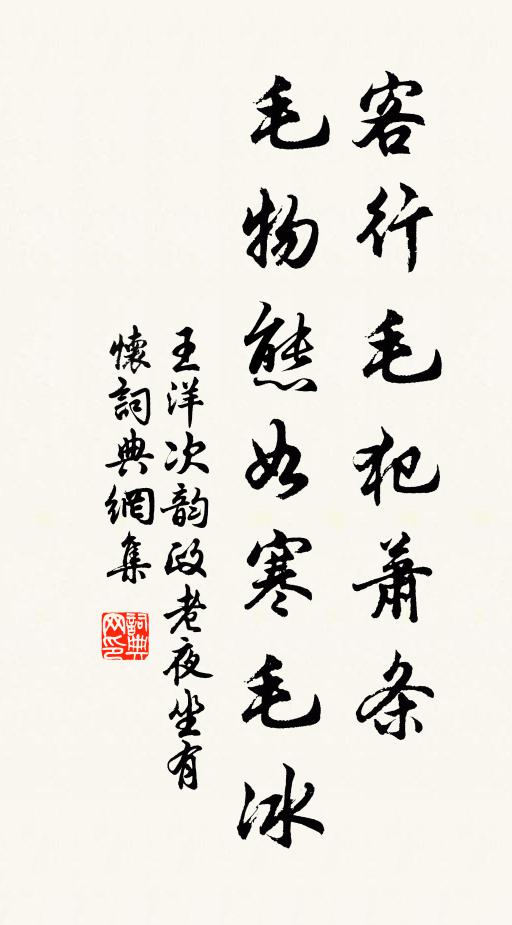 客行毛犯萧条
毛物熊如寒毛冰
王洋次韵政老夜坐有
懷詞典網集
詞典
网印